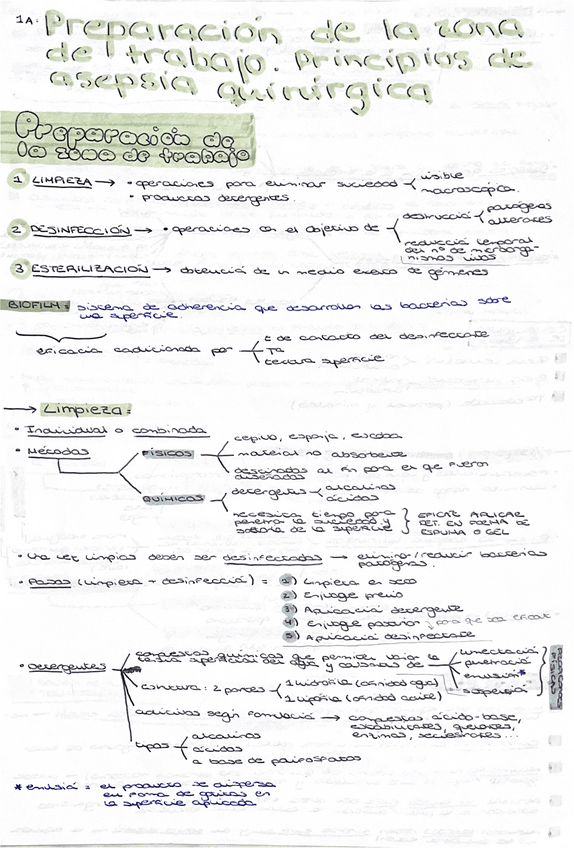 1A: Preparación de la zona
de trabajo. Principios de
asepsia quirúrgica
Preparación de
la zona de trabajo
1 LIMPIEZA → • operaciones para eliminar suciedad visible
macroscópica.
• productos detergentes.
2 DESINFECCIÓN → • operaciones con el objetivo de
destrucción patógenos
alterantes
reducción temporal
del nº de microorga-
nismos vivos
3 ESTERILIZACIÓN → obtención de un medio exento de gérmenes
BIOFILM: sistema de adherencia que desarrollan las bacterias sobre
una superficie
eficacia condicionada por
t de contacto del desinfectante
Tª
textura superficie
→ Limpieza:
• Individual o combinada
• Métodos
FÍSICOS
cepillo, esponja, escoba
material no absorbente
destinados al fin para el que fueron
diseñados
QUÍMICOS
detergentes alcalinos
ácidos
necesita tiempo para
penetrar la suciedad y
soltarla de la superficie
EFICAZ APLICAR
DET. EN FORMA DE
ESPUMA O GEL
• Una vez limpias deben ser desinfectadas → eliminar/reducir bacterias
patógenas.
• Pasos (limpieza + desinfección) = 1) Limpieza en seco
2) Enjuague previo
3) Aplicación detergente
4) Enjuague posterior
5) Aplicación desinfectante
• Detergentes
compuestos químicos que permiten variar la
tensión superficial del agua y
humectación
penetración
emulsión*
suspensión
estructura: 2 partes
1 hidrófila (afinidad agua)
1 lipófila (afinidad aceite)
aditivos según formulación → compuestos ácido-base,
estabilizadores, quelantes,
enzimas, secuestrantes...
tipos
alcalinos
ácidos
a base de polifosfatos
* emulsión = el producto se dispersa
en forma de gotitas en
la superficie aplicada